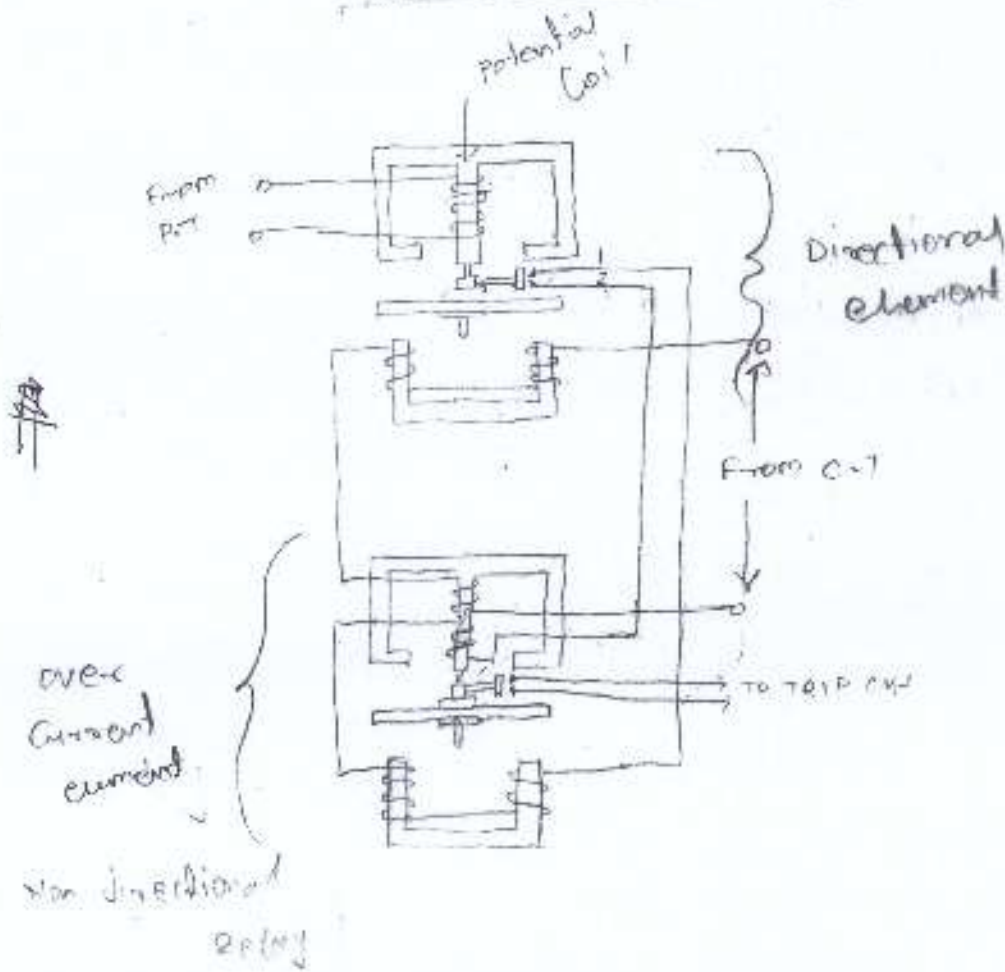 potential
Coil
From
P.T
Directional
element
1
2
From C.T
over
Current
element
TO TRIP
Non directional
relay